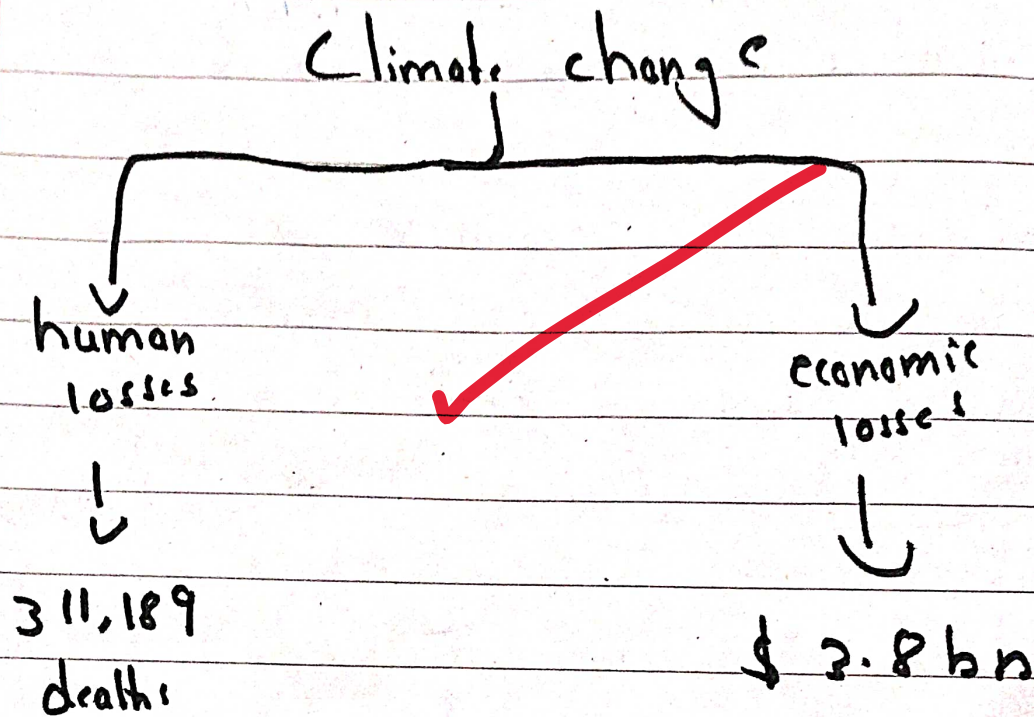 Climate change
human
losses
economic
losses
311,189
deaths
$ 3.8 bn